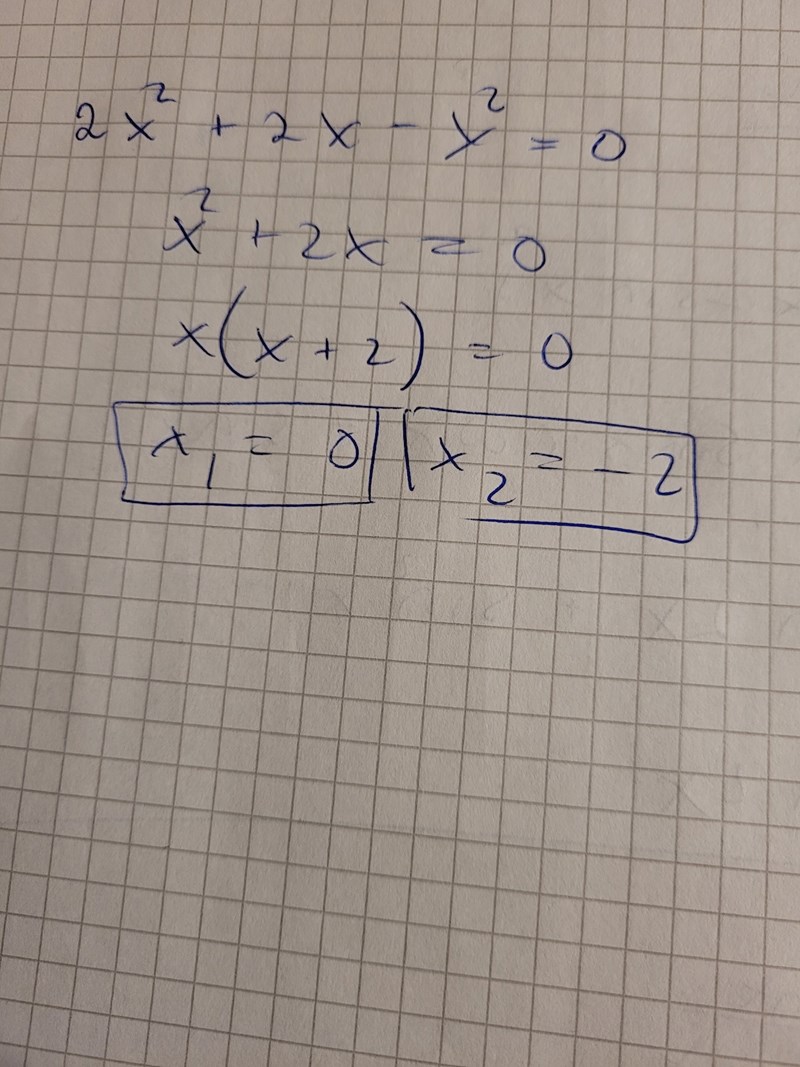 2x² + 2x - x² = 0
x² + 2x = 0
x(x + 2) = 0
x₁ = 0 x₂ = -2